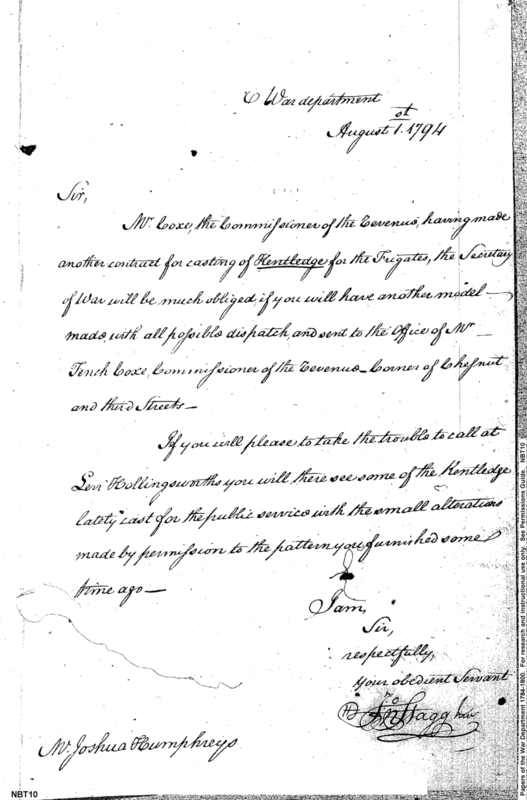 War department
August 1.st 1794
Sir,
Mr. Coxe, the Commissioner of the Revenue, having made
another contract for casting of Kentledge for the Frigates, the Secretary
of War will be much obliged, if you will have another model
made with all possible dispatch, and sent to the Office of Mr
Tench Coxe, Commissioner of the Revenue — Corner of Chesnut
and third Streets —
If you will please to take the trouble to call at
Levi Hollingsworths you will there see some of the Kentledge
lately cast for the public service with the small alterations
made by permission to the pattern you furnished some
time ago —
I am,
Sir,
respectfully,
your obedient Servant
Jno Stagg Junr
Mr. Joshua Humphreys
NBT10
Papers of the War Department 1784-1800. For research and instructional use only. See Permissions Guide. NBT10